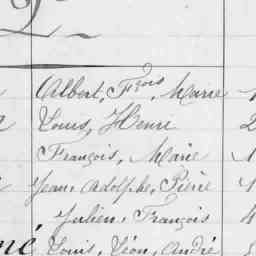 Albert, Frois, Marie 1
Louis, Henri 2
François, Marie 1
Jean, Adolphe, Pierre 1
Julien, François 4
né Louis, Léon, André